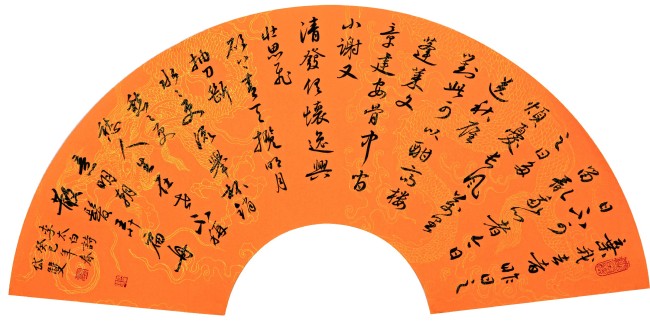 棄我去者昨日之
日不可
留亂我心者今日
之日多
煩憂長風萬里
送秋雁
對此可以酣高樓
蓬萊文
章建安骨中間
小謝又
清發俱懷逸興
壯思飛
欲上青天攬明月
抽刀斷
水水更流舉杯銷
愁愁更
愁人生在世不稱
意明朝
散髮弄扁舟
李太白詩
癸巳年春